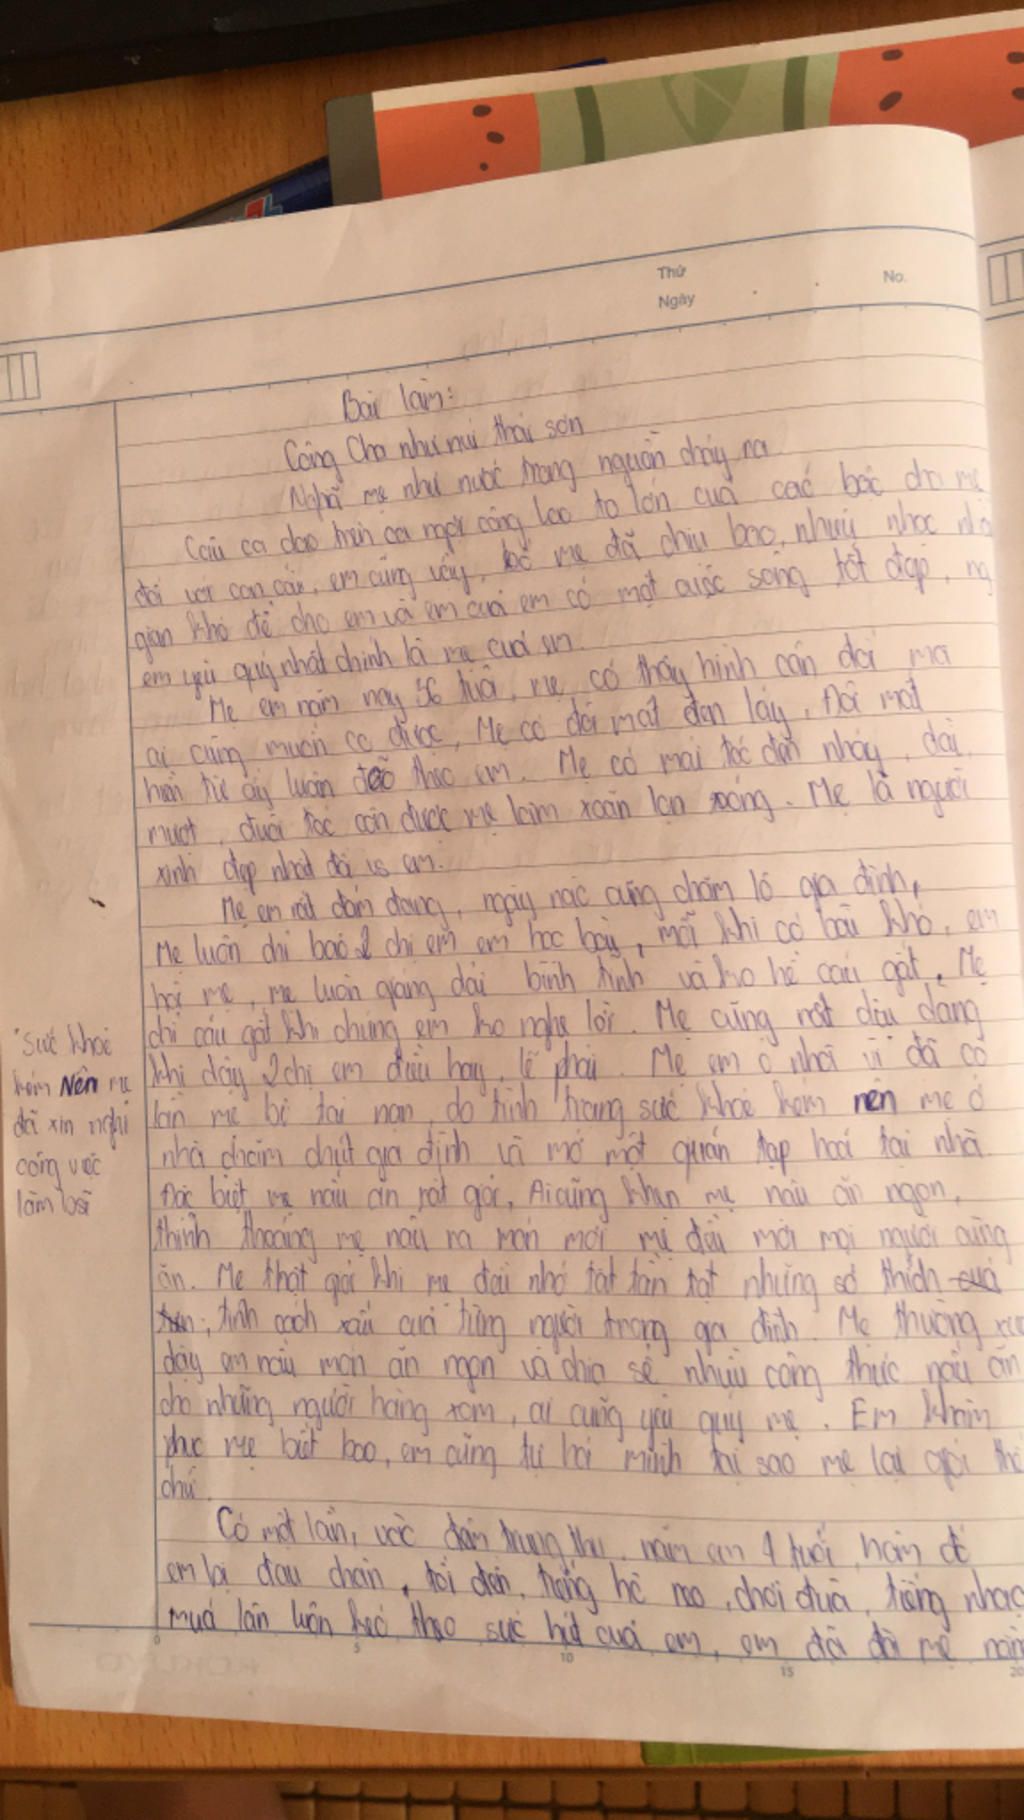 Thứ
Ngày
No.
Bài làm:
Công Cha như núi thái sơn
Nghĩa mẹ như nước trong nguồn chảy ra
Câu ca dao trên ca ngợi công lao to lớn của các bậc cha mẹ
đối với con cái, em cũng vậy, bố mẹ đã chịu bao nhiêu nhọc
gian khó để cho em và em của em có một cuộc sống tốt đẹp, ng
em yêu quý nhất chính là mẹ của em.
Mẹ em năm nay 36 tuổi, mẹ có thây hình cân đối mà
ai cũng muốn có được, Mẹ có đôi mắt đen láy, đôi mắt
hiền từ ấy luôn theo em. Mẹ có mái tóc đen nháy, dài
mượt, đuôi tóc còn được mẹ làm xoăn lọn sóng. Mẹ là người
xinh đẹp nhất đối vs em.
Mẹ em rất đảm đang, ngày nào cũng chăm lo gia đình,
Mẹ luôn chỉ bảo 2 chị em em học bài, mỗi khi có bài khó, em
hỏi mẹ, mẹ luôn giảng dải bình tĩnh và ko hề cáu gắt. Mẹ
chỉ cáu gắt khi chúng em ko nghe lời. Mẹ cũng rất dịu dàng
khi dạy 2 chị em điều hay, lẽ phải. Mẹ em ở nhà vì đã có
lần mẹ bị tai nạn, do tình trạng sức khoẻ kém nên mẹ ở
nhà chăm chút gia đình và mở một quán tạp hoá tại nhà.
Đặc biệt, mẹ nấu ăn rất giỏi, Ai cũng khen mẹ nấu ăn ngon,
thỉnh thoảng mẹ nấu ra món mới mẹ đều mời mọi người cùng
ăn. Mẹ thật giỏi khi mẹ đều nhớ tất tần tật những sở thích của
tính cách xấu của từng người trong gia đình. Mẹ thường
dạy em nấu món ăn ngon và chia sẻ nhiều công thức nấu ăn
cho những người hàng xóm, ai cũng yêu quý mẹ. Em khâm
phục mẹ biết bao, em cũng tự hỏi mình tại sao mẹ lại giỏi thế
chứ.
Có một lần, vào đêm trung thu, năm em 9 tuổi, hôm đó
em bị đau chân, tối đến, tiếng hò reo, chơi đùa, tiếng nhạc
múa lân luôn kéo theo sức hút của em, em đã đòi mẹ
"Sức khoẻ
kém Nên mẹ
đã xin nghỉ
công việc
làm
0
5
10
15
20